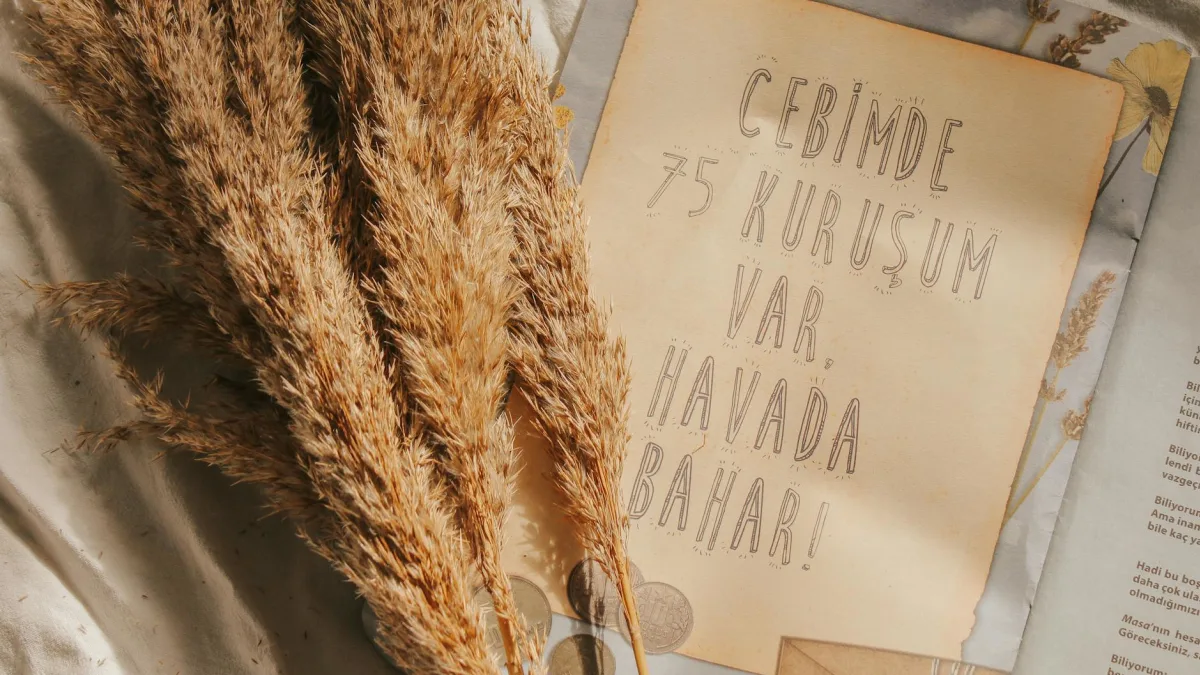 CEBİMDE
75 KURUŞUM
VAR,
HAVADA
BAHAR!
Bil
için
hiftin
Biliyo
lendi b
vazgeç
Biliyorum
Ama inan
bile kaç ya
Hadi bu boş
daha çok ula
olmadığımız
Masa'nın hesa
Göreceksiniz, s
Biliyorum